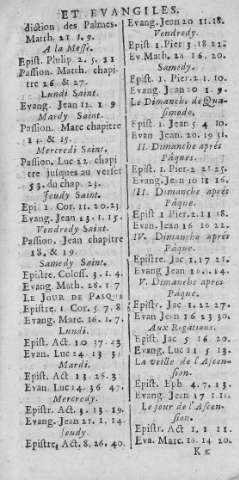 ET EVANGILES.
diction des Palmes.
Matth. 21. 1. 9.
A la Messe.
Epist. Philip. 2. 5. 11
Passion. Matth. chapi-
tre 26. & 27.
Lundi Saint.
Evang. Jean 12. 1. 9
Mardy Saint.
Passion. Marc chapitre
14. & 15.
Mercredi Saint.
Passion. Luc 22. chapi
tre jusques au verset
53. du chap. 23.
Jeudy Saint.
Epi. 1. Cor. 11. 20. 23
Evang. Jean 13. 1. 15.
Vendredy Saint.
Passion. Jean chapitre
18. & 19.
Samedy Saint.
Epistre. Coloss. 3. 1. 4.
Evang. Math. 28. 1. 7
LE JOUR DE PASQUE
Epistre. 1. Cor. 5. 7. 8
Evang. Marc. 16. 1. 7.
Lundi.
Epist. Act. 10. 37. 43
Evan Luc 24. 13 35
Mardi.
Epist. Act. 13. 26. 3
Evan Luc 14. 36. 47
Mercredy.
Epistr. Act. 3. 13. 19.
Evang. Jean 21. 1. 14.
Jeudy.
Epistre, Act. 8. 26. 40.
Evang. Jean 20 11. 18.
Vendredy.
Epist. 1. Pier 3. 18. 22.
Ev. Math. 28. 16. 20.
Samedy.
Epist. 1. Pier. 2. 1. 10.
Evang. Jean 20. 1. 9.
Le Dimanche de Qua-
simodo.
Epist. 1. Jean 5. 4. 10.
Evan Jean. 20. 19. 31.
II. Dimanche aprés
Pâques.
Epist. 1. Pier 2. 21. 25.
Evang. Jean 10 11 16.
III. Dimanche aprés
Pâque.
Epist 1 Pier. 2. 11. 18.
Evan Jean 16 16 22
IV. Dimanche aprés
Pâque.
Epistre. Jac 1. 17. 21.
Evang Jean 16. 14.
V. Dimanche aprés
Pâque.
Epistr. Jac 1. 22. 27.
Evan Jean 16 23 30.
Aux Rogations.
Epist. Jac 5 16 20.
Evang. Luc 11 5 13.
La veille de l'Ascen-
sion.
Epist. Eph 4. 7. 13.
Evang. Jean 17 1 11.
Le jour de l'Ascen-
sion.
Epistr. Act. 1. 1 11
Eva. Marc. 16. 14 20.
K k